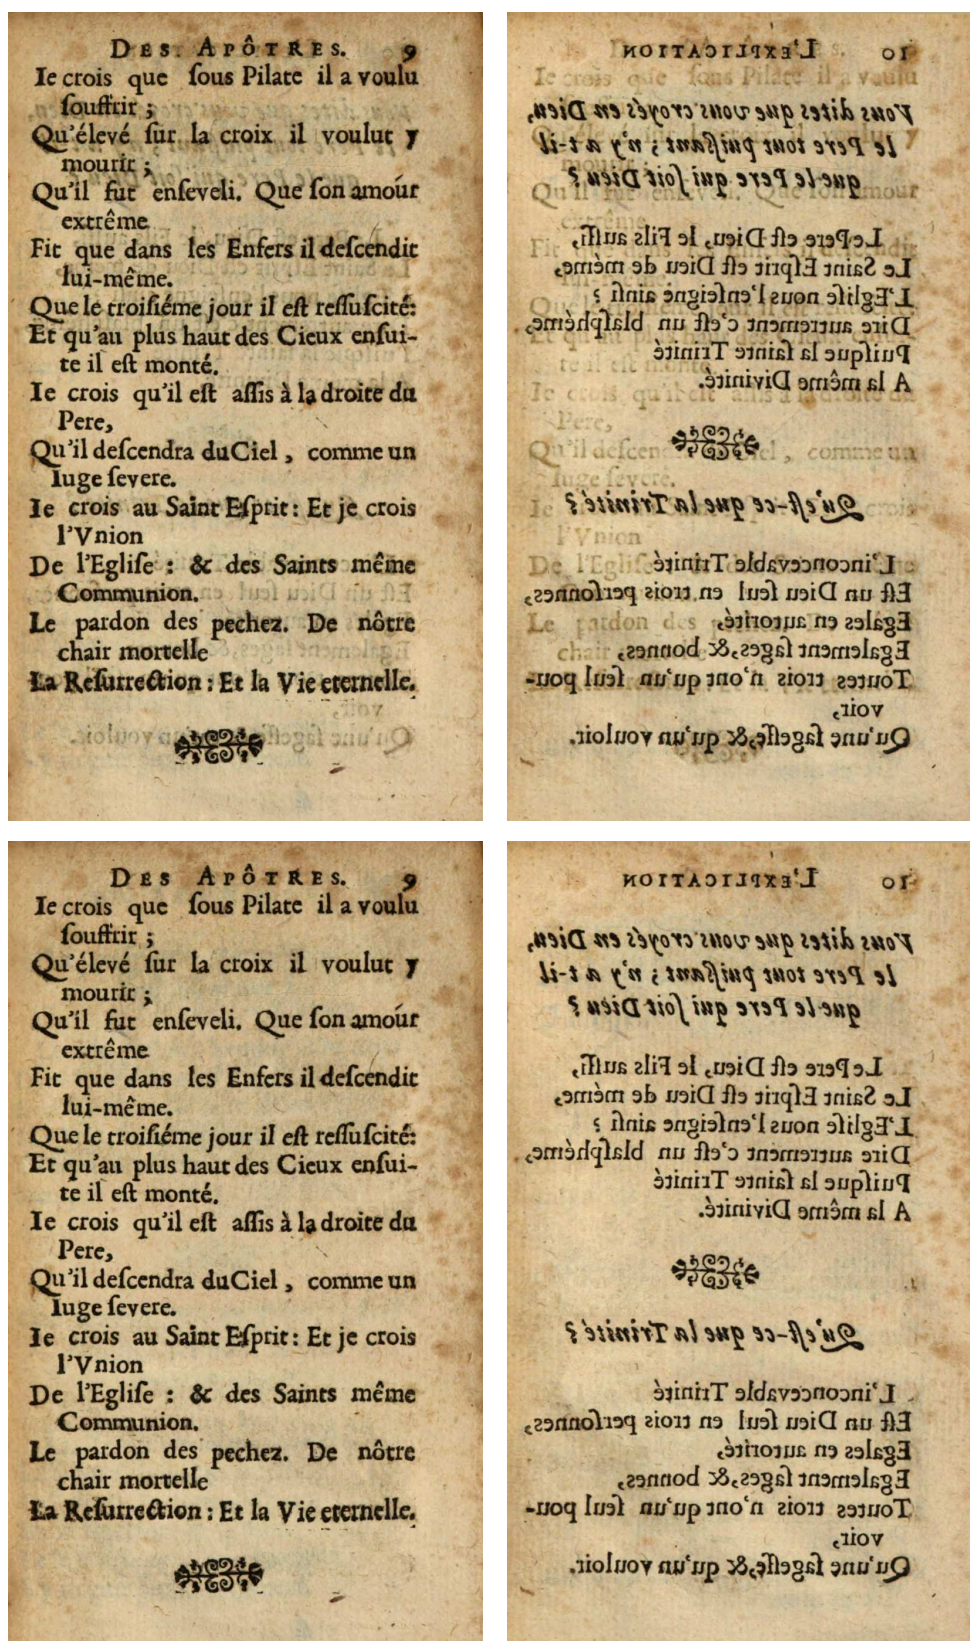 DES APÔTRES. 9
Ie crois que ſous Pilate il a voulu
ſouffrir ;
Qu'élevé ſur la croix il voulut y
mourir ;
Qu'il fut enſeveli. Que ſon amour
extrême
Fit que dans les Enfers il deſcendit
lui-même.
Que le troiſiéme jour il eſt reſſuſcité:
Et qu'au plus haut des Cieux enſui-
te il eſt monté.
Ie crois qu'il eſt aſſis à la droite du
Pere,
Qu'il deſcendra du Ciel , comme un
Iuge ſevere.
Ie crois au Saint Eſprit : Et je crois
l'Vnion
De l'Egliſe : & des Saints même
Communion.
Le pardon des pechez. De nôtre
chair mortelle
La Reſurrection : Et la Vie eternelle.
10 L'EXPLICATION
Vous dites que vous croyés en Dieu,
le Pere tout puiſſant ; n'y a t-il
que le Pere qui ſoit Dieu ?
Le Pere eſt Dieu, le Fils auſſi,
Le Saint Eſprit eſt Dieu de même,
L'Egliſe nous l'enſeigne ainſi ;
Dire autrement c'eſt un blaſphéme,
Puiſque la ſainte Trinité
A la même Divinité.
Qu'eſt-ce que la Trinité ?
L'inconcevable Trinité
Eſt un Dieu ſeul en trois perſonnes,
Egales en autorité,
Egalement ſages, & bonnes,
Toutes trois n'ont qu'un ſeul pou-
voir,
Qu'une ſageſſe, & qu'un vouloir.
DES APÔTRES. 9
Ie crois que ſous Pilate il a voulu
ſouffrir ;
Qu'élevé ſur la croix il voulut y
mourir ;
Qu'il fut enſeveli. Que ſon amour
extrême
Fit que dans les Enfers il deſcendit
lui-même.
Que le troiſiéme jour il eſt reſſuſcité:
Et qu'au plus haut des Cieux enſui-
te il eſt monté.
Ie crois qu'il eſt aſſis à la droite du
Pere,
Qu'il deſcendra du Ciel , comme un
Iuge ſevere.
Ie crois au Saint Eſprit : Et je crois
l'Vnion
De l'Egliſe : & des Saints même
Communion.
Le pardon des pechez. De nôtre
chair mortelle
La Reſurrection : Et la Vie eternelle.
10 L'EXPLICATION
Vous dites que vous croyés en Dieu,
le Pere tout puiſſant ; n'y a t-il
que le Pere qui ſoit Dieu ?
Le Pere eſt Dieu, le Fils auſſi,
Le Saint Eſprit eſt Dieu de même,
L'Egliſe nous l'enſeigne ainſi ;
Dire autrement c'eſt un blaſphéme,
Puiſque la ſainte Trinité
A la même Divinité.
Qu'eſt-ce que la Trinité ?
L'inconcevable Trinité
Eſt un Dieu ſeul en trois perſonnes,
Egales en autorité,
Egalement ſages, & bonnes,
Toutes trois n'ont qu'un ſeul pou-
voir,
Qu'une ſageſſe, & qu'un vouloir.